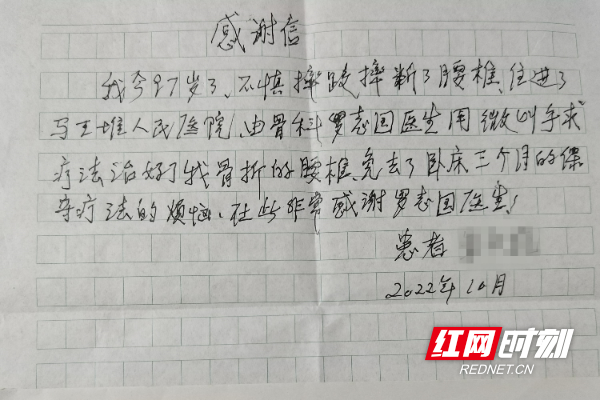 感谢信
我今97岁了、不慎摔跤摔断了腰椎、住进了
马王堆人民医院、由骨科罗志国医生用微创手术
疗法治好了我骨折的腰椎、免去了卧床三个月的保
守疗法的烦恼、在此非常感谢罗志国医生！
患者
2022年10月
红网时刻
REDNET.CN